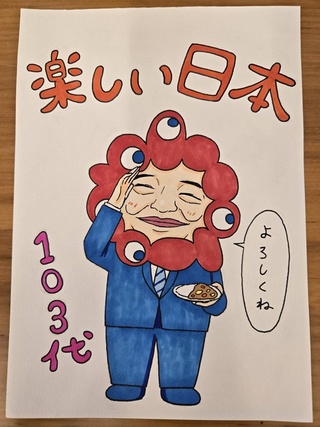 楽しい日本
よろしくね
103代